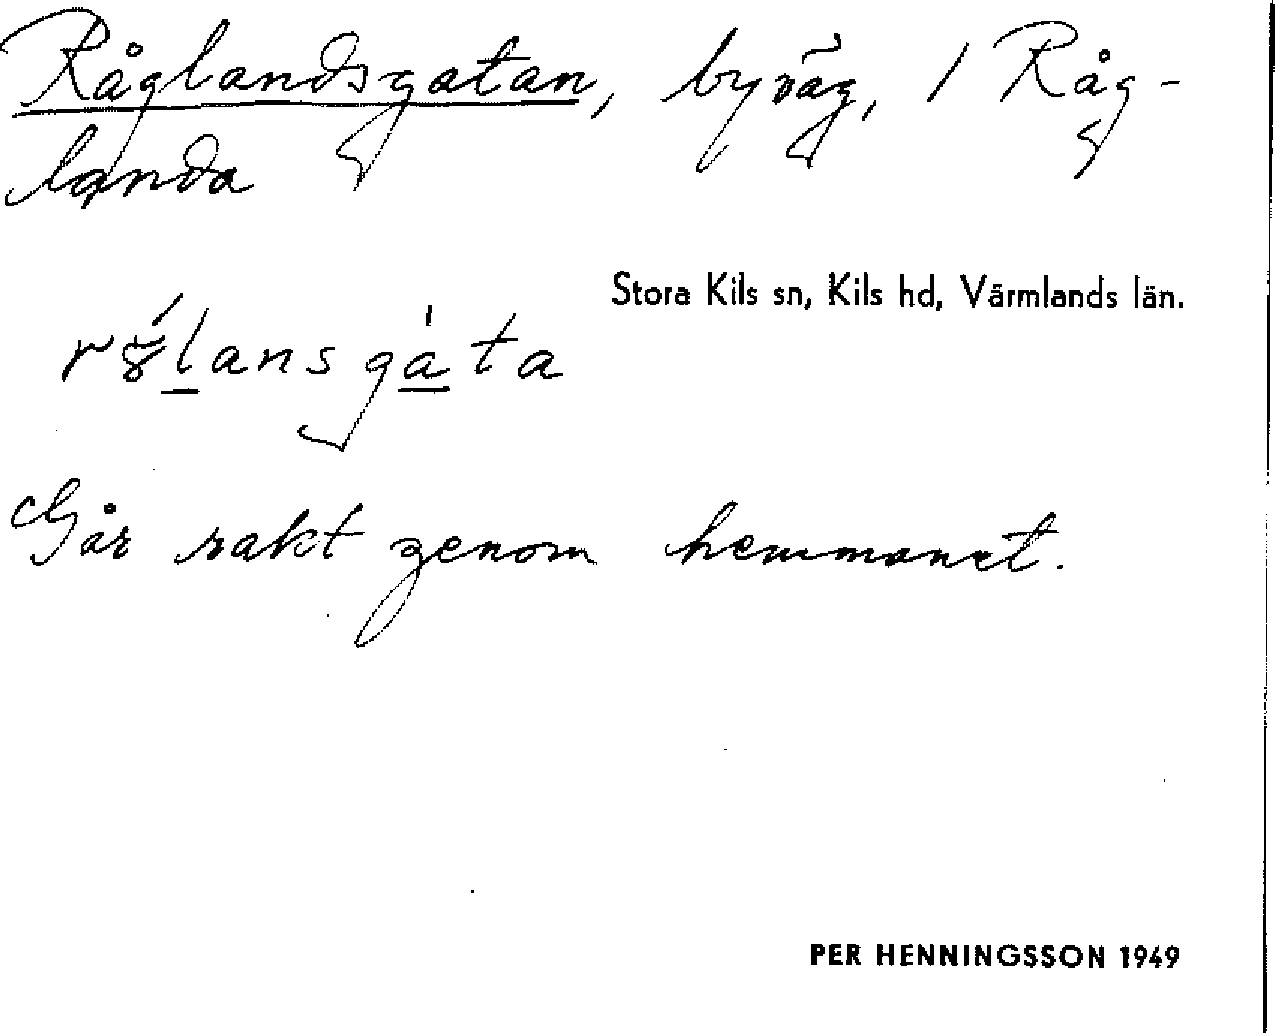 Råglandsgatan, byväg, 1 Råg-
landa
Stora Kils sn, Kils hd, Värmlands län.
Går rakt genom hemmanet.
PER HENNINGSSON 1949